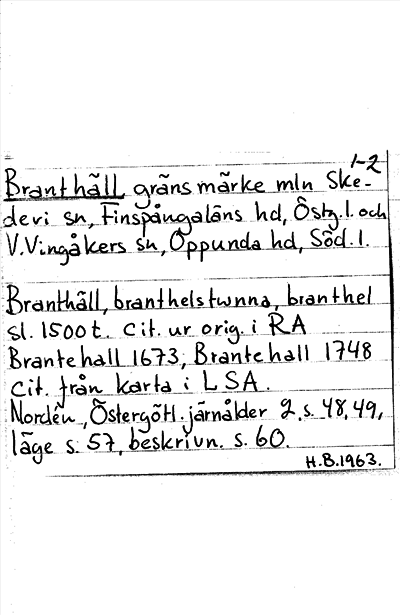 1-2
Branthäll gränsmärke mln Ske-
devi sn, Finspångaläns hd, Östg.l. och
V.Vingåkers sn, Oppunda hd, Söd.l.
Branthäll, branthelstwnna, branthel
sl. 1500t. cit. ur orig. i RA
Brantehall 1673, Brantehall 1748
cit. från karta i LSA.
Nordén, Östergötl. järnålder 2, s. 48, 49,
läge s. 57, beskrivn. s. 60.
H.B.1963.